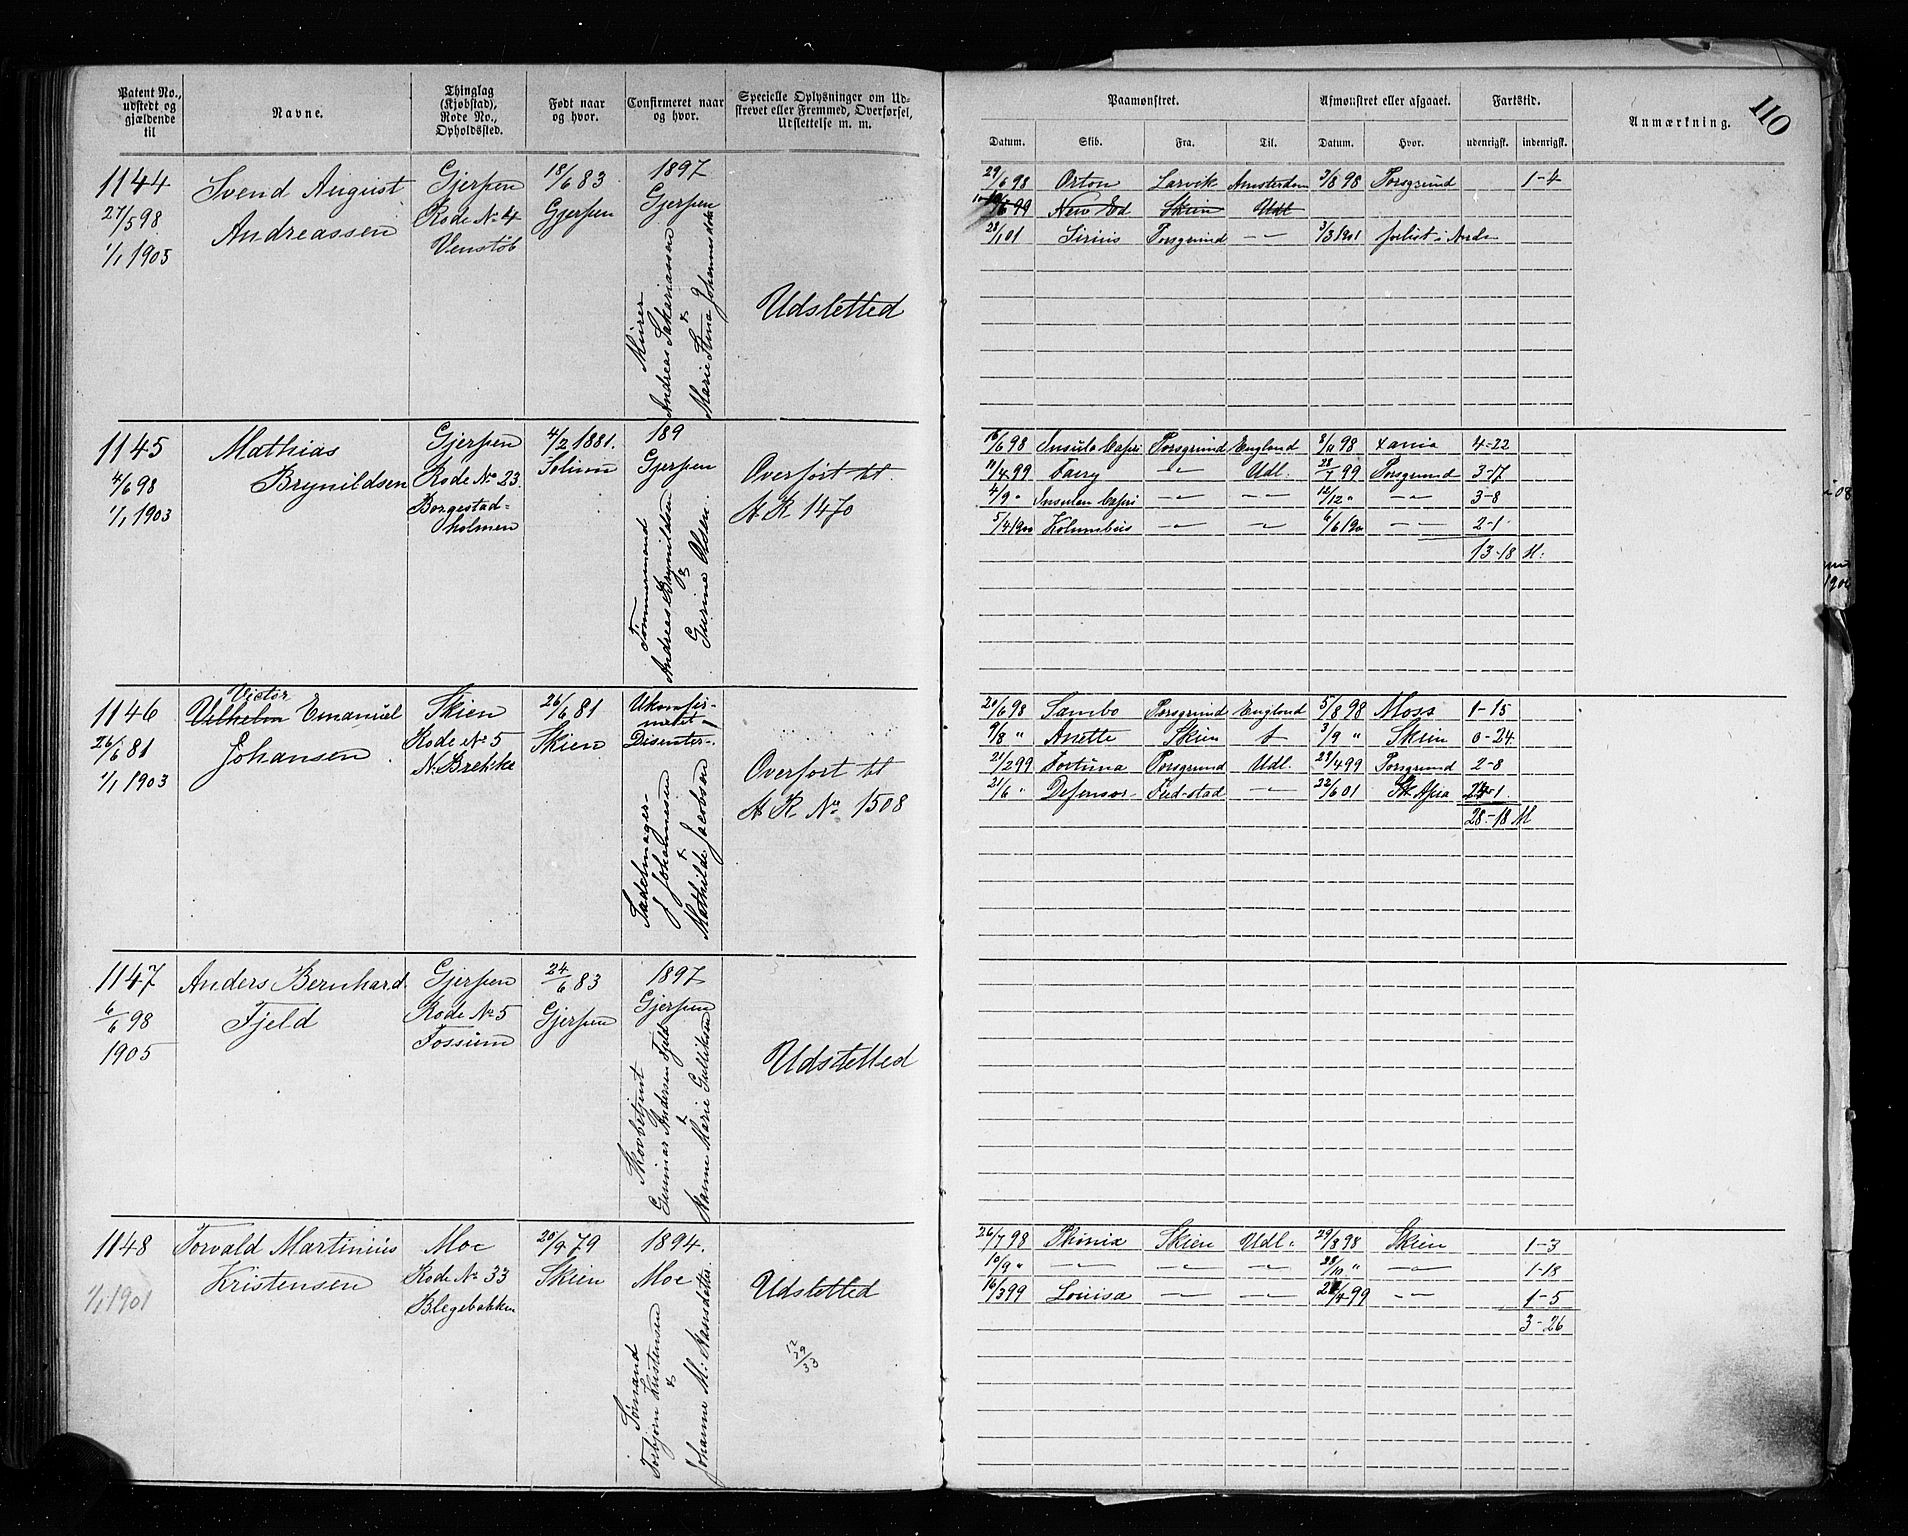 110
Patent No., udstedt og gjældende til
Navne.
Thinglag (Kjøbstad), Rode No., Opholdssted.
Født naar og hvor.
Confirmeret naar og hvor.
Specielle Oplysninger om Udskrevet eller Fremmed, Overførsel, Udslettelse m. m.
Paamønstret.
Afmønstret eller afgaaet.
Fartstid.
Anmærkning.
Datum. Skib. Fra. Til. Datum. Hvor. udenrigsk. indenrigsk.
1144
27/5 98
1/1 1905
Svend August
Andreassen
Gjerpen
Rode No 4
Venstøb
18/6 83
Gjerpen
1897
Gjerpen
Murer
Andreas Sakariassen
&
Marie Stina Johannesdatter
Udslettet
29/6 98 Orton Larvik Amsterdam 3/8 98 Porsgrund 1-4
6 99 New Ed Skien Udl
28/1 01 Sirius Porsgrund -"- 3/3 1901 forlist i
1145
4/6 98
1/1 1903
Mathias
Brynildsen
Gjerpen
Rode No 23
Borgestad-
holmen
4/2 1881.
Solum
189
Gjerpen
Tømmermand
Andreas Brynildsen
&
Gurine Olsen.
Overført til
A R 1470
16/6 98 Insula Capri Porsgrund England 8/11 98 Xania 4-22
11/4 99 Farry -"- Udl. 28/7 99 Porsgrund 3-17
4/9 " Insulan Capri -"- -"- 12/12 " -"- 3-8
5/4 1900 Kolumbus -"- -"- 6/6 1900 -"- 2-1
13-18 M:
1146
26/6 81
1/1 1903
Victor
Vilhelm Emanuel
Johansen
Skien
Rode No 5
N. Brekke
26/6 81
Skien
Ukonfir-
meret
Disenter-
Sadelmager-
J Johannesen
&
Mathilde Jacobsen
Overført til
A R No 1508
20/6 98 Sambo Porsgrund England 5/8 98 Moss 1-15
9/8 " Anette Skien 3/9 " Skien 0-24
21/2 99 Fortuna Porsgrund Udl. 28/4 99 Porsgrund 2-8
21/6 " Defensor Fred-stad -"- 22/6 01 Apia 24-1
28-18 M
1147
6/6 98
1905
Anders Bernhard
Fjeld
Gjerpen
Rode No 5
Fossum
24/6 83
Gjerpen
1897
Gjerpen
Skovbetjent
Gunnar Andersen Fjeld
&
Karen Marie Gulliksen
Udslettet
1148
1/1 1901
Torvald Martinius
Kristensen
Moe
Rode No 33
Blegebakken
20/9 79
Skien
1894.
Moe
Sømand
Torbjørn Kristensen
&
Johanne M: Rasmusdatter
Udslettet
12
29
33
26/7 98 Phønix Skien Udl. 29/8 98 Skien 1-3
10/9 " -"- -"- -"- 28/10 " -"- 1-18
16/3 99 Louisa -"- -"- 21/4 99 -"- 1-5
3-26